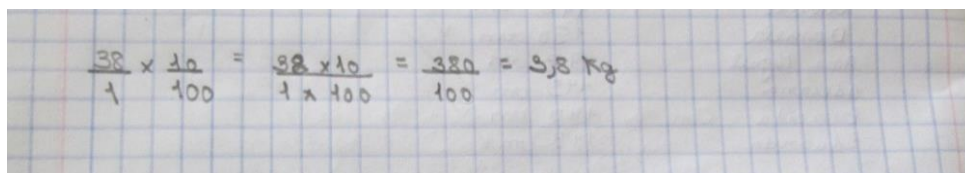 38/1 × 10/100 = 38 × 10/1 × 100 = 380/100 = 3,8 kg